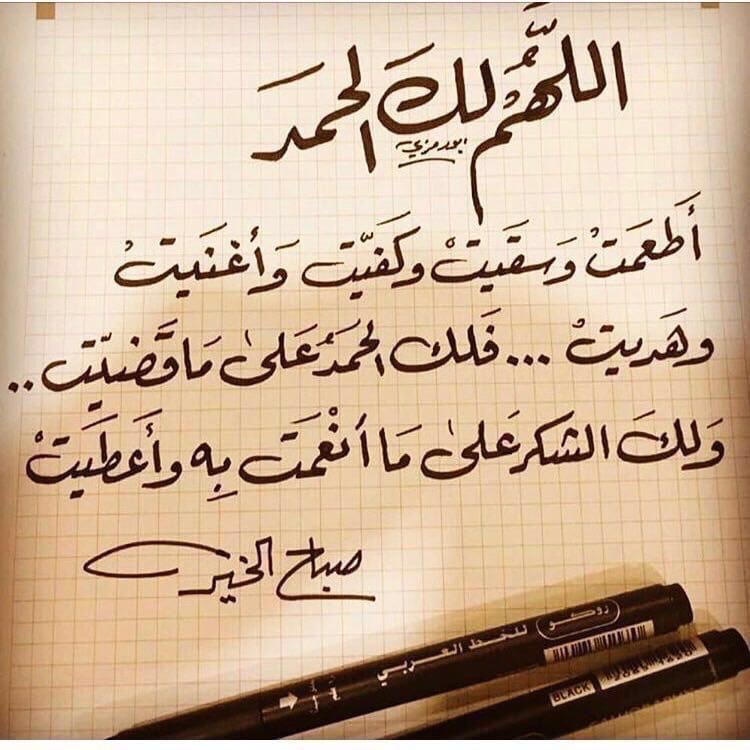 اللَّهُمْ لك الحمد
ابو رمزي
أَطعَمتْ وَسقَيتْ وكَفيّت وَأغنَيتْ
وهَديتْ ... فَلك الحمَدُ عَلىٰ مَا قَضيّت ..
وَلكَ الشكر عَلىٰ مَا أنْعَمَت بِه وأَعطَيتْ
صباح الخير
زوكو للخط العربي
BLACK